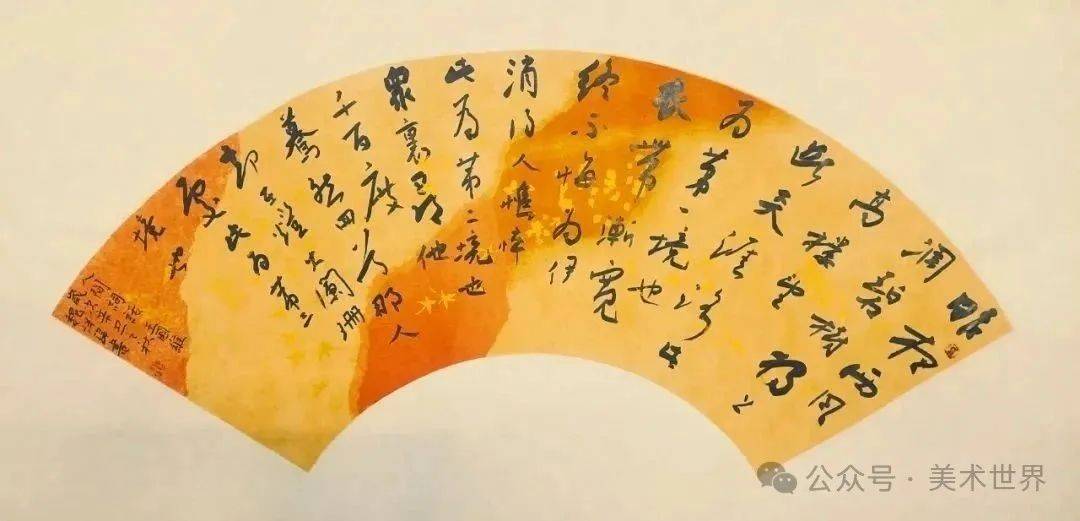 昨夜西风
凋碧树独上
高楼望尽
天涯路此
为第一境也
衣带渐宽
终不悔为伊
消得人憔悴
此为第二境也
众里寻他
千百度
蓦然回首那人
却在灯火阑珊
处此为第三
境也
人间词话王国维
岁次辛卯之秋
公众号·美术世界